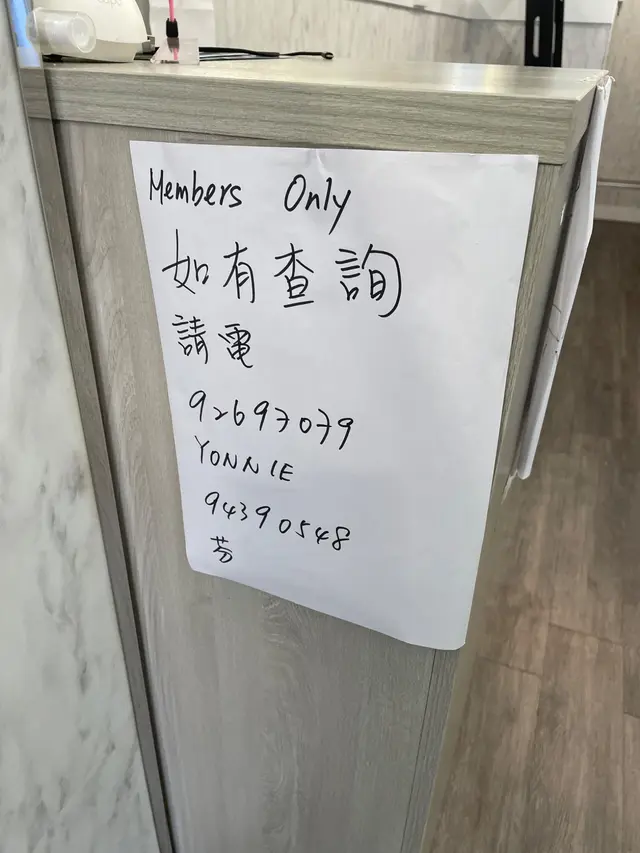 Members Only
如有查詢
請電
92697079
YONNIE
94390548
芬